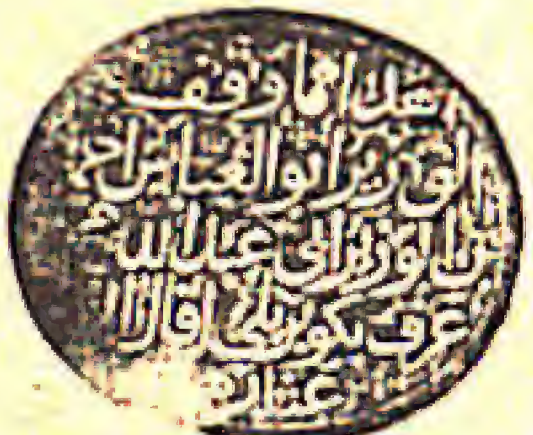 هذا ما وقف
الوزير ابو العباس احمد
بن الوزير ابي عبد الله
عرف بكوبريلي اقال الله